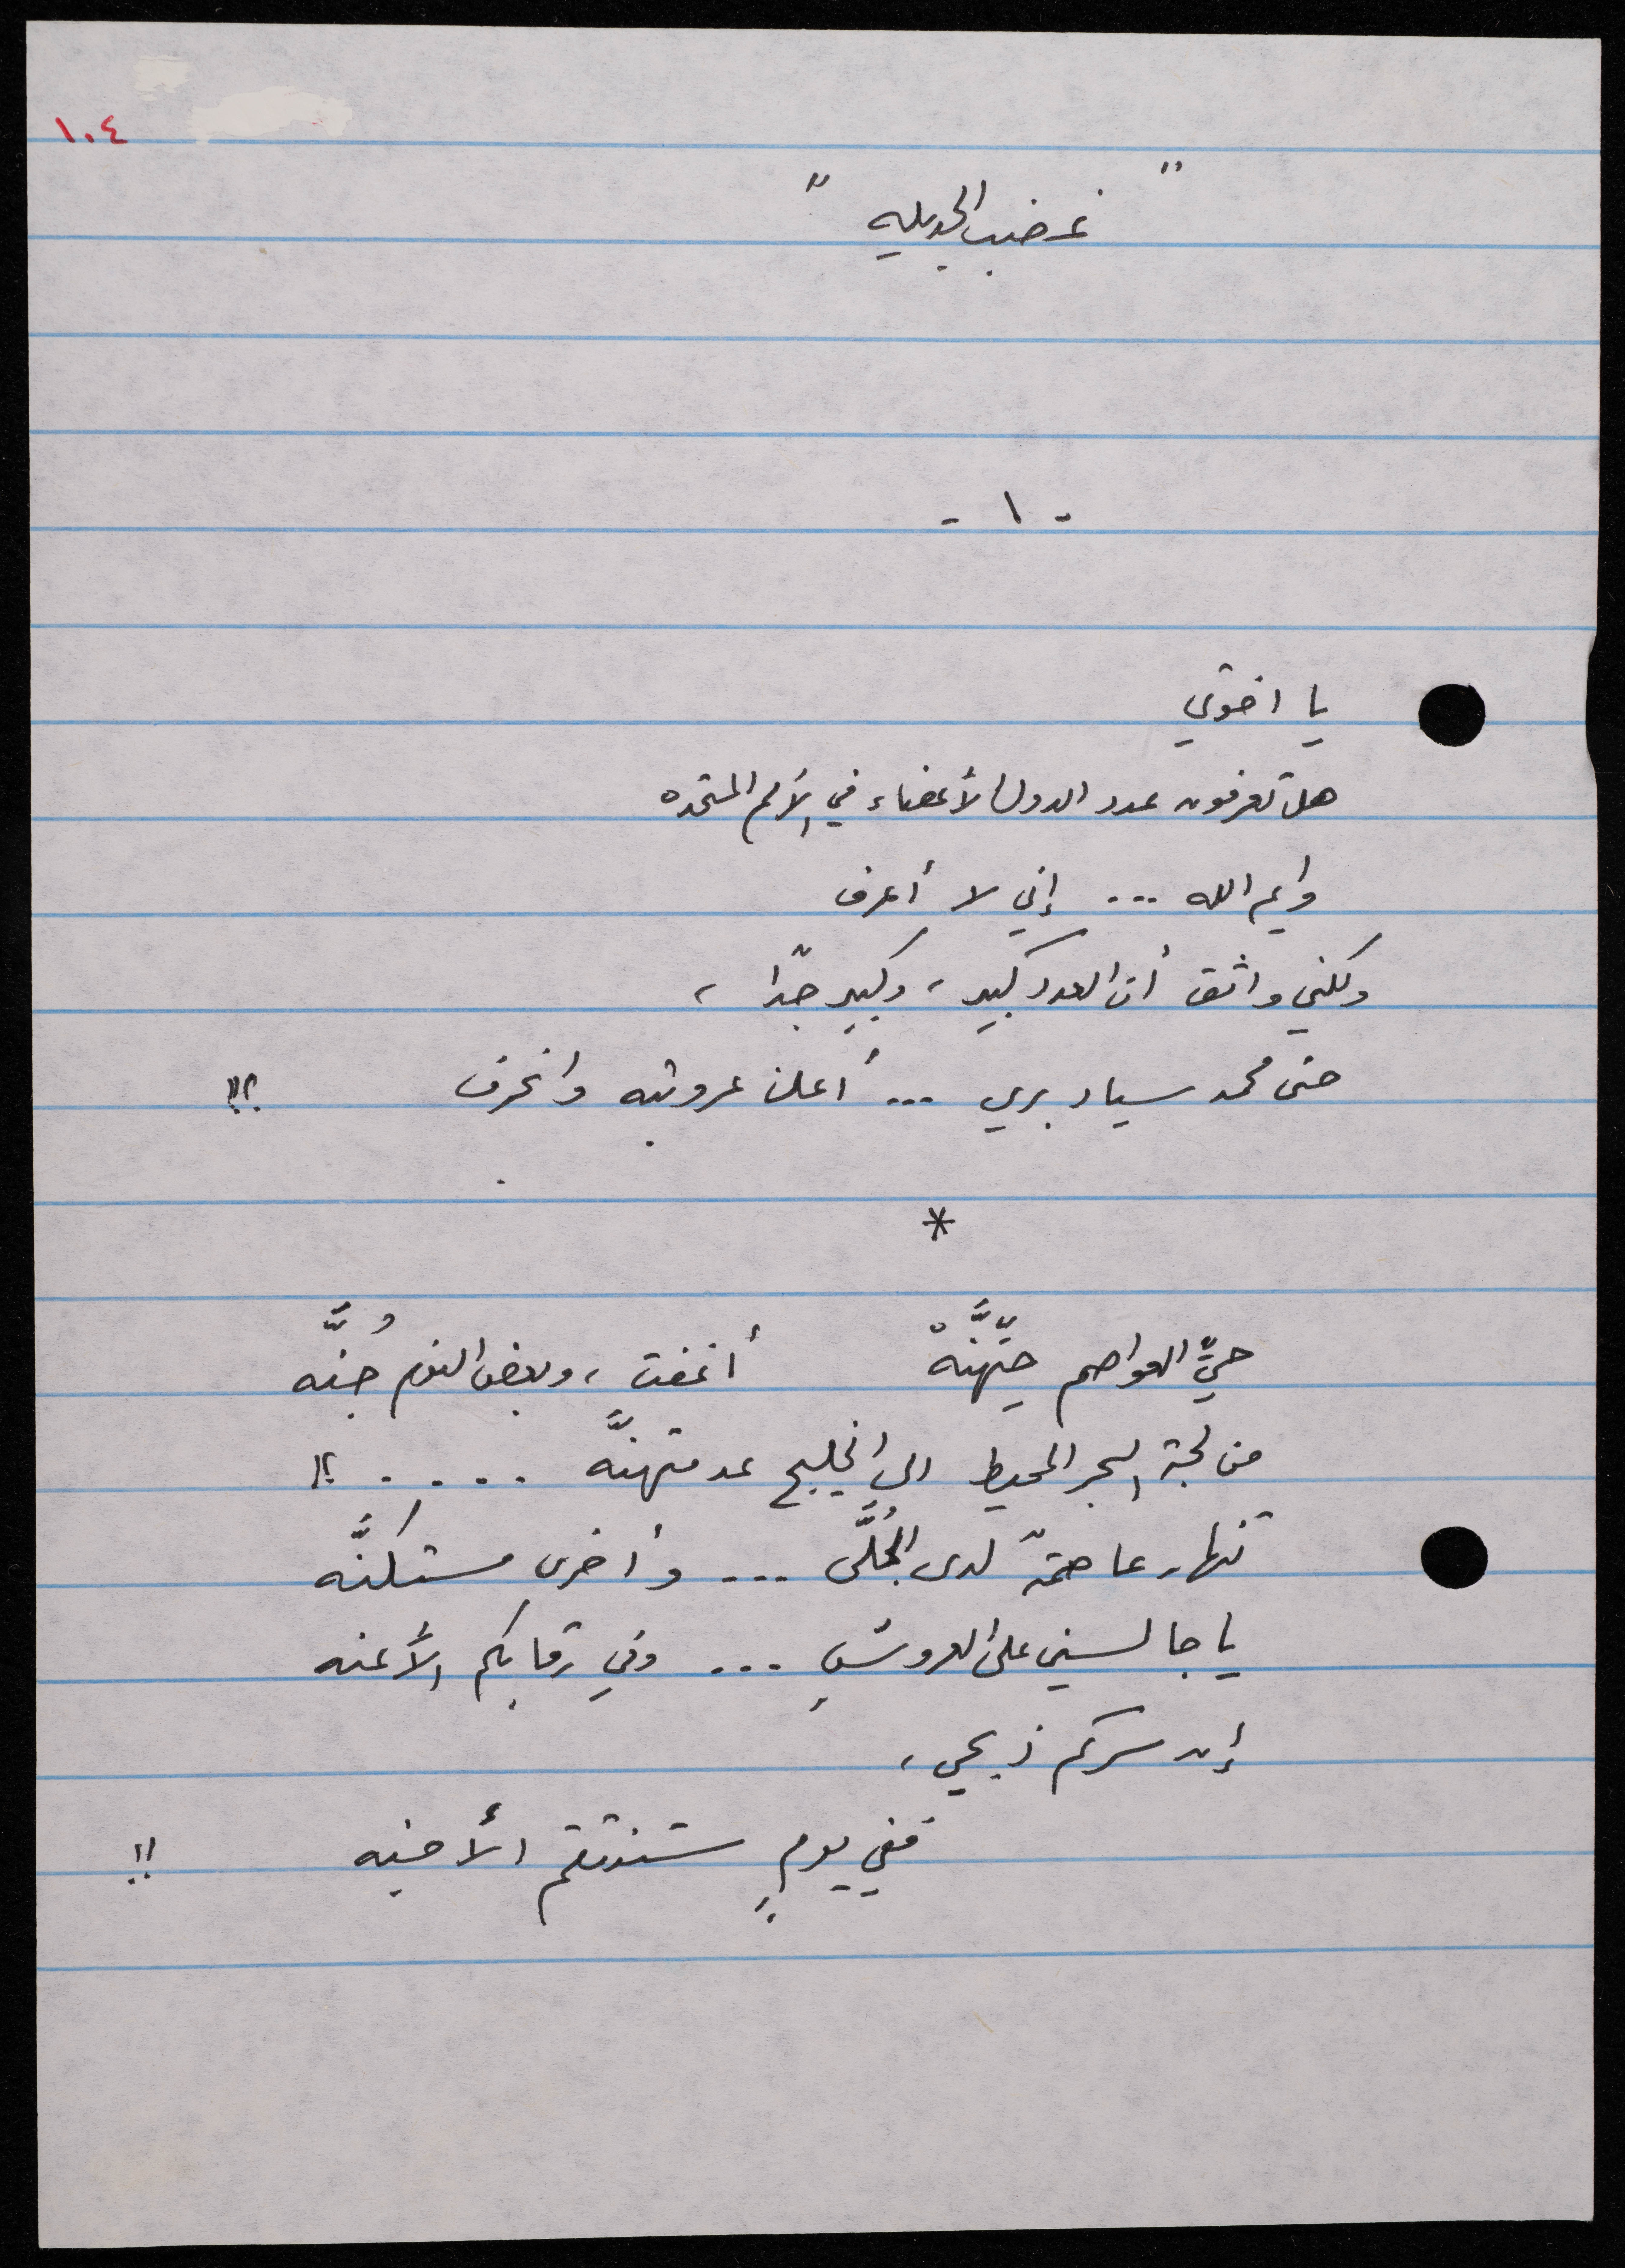 ١٠٤
" غضب الجديله "
- ١ -
يا اخوتي
هل تعرفون عدد الدول الأعضاء في الأمم المتحده
وايم الله ... إني لا أعرف
ولكني واثق أن العدد كبير ، وكبير جدّا ،
حتى محمد سياد بري ... أعلن عروبته وانحرف !!؟
*
حيِّ العواصم حيِّهنَّهْ أغفت ، وبعض النوم جُنَّه
من لجة البحر المحيط الى الخليج عدمتهنَّه . . . . !؟
تنهار عاصمةٌ لدى الجُلَّى ... وأخرى مستكنَّه
يا جالسين على العروشِ ... وفي رقابكم الأعنه
إن سركم ذبحي ،
ففي يومٍ ستنتقم الأجنه !!